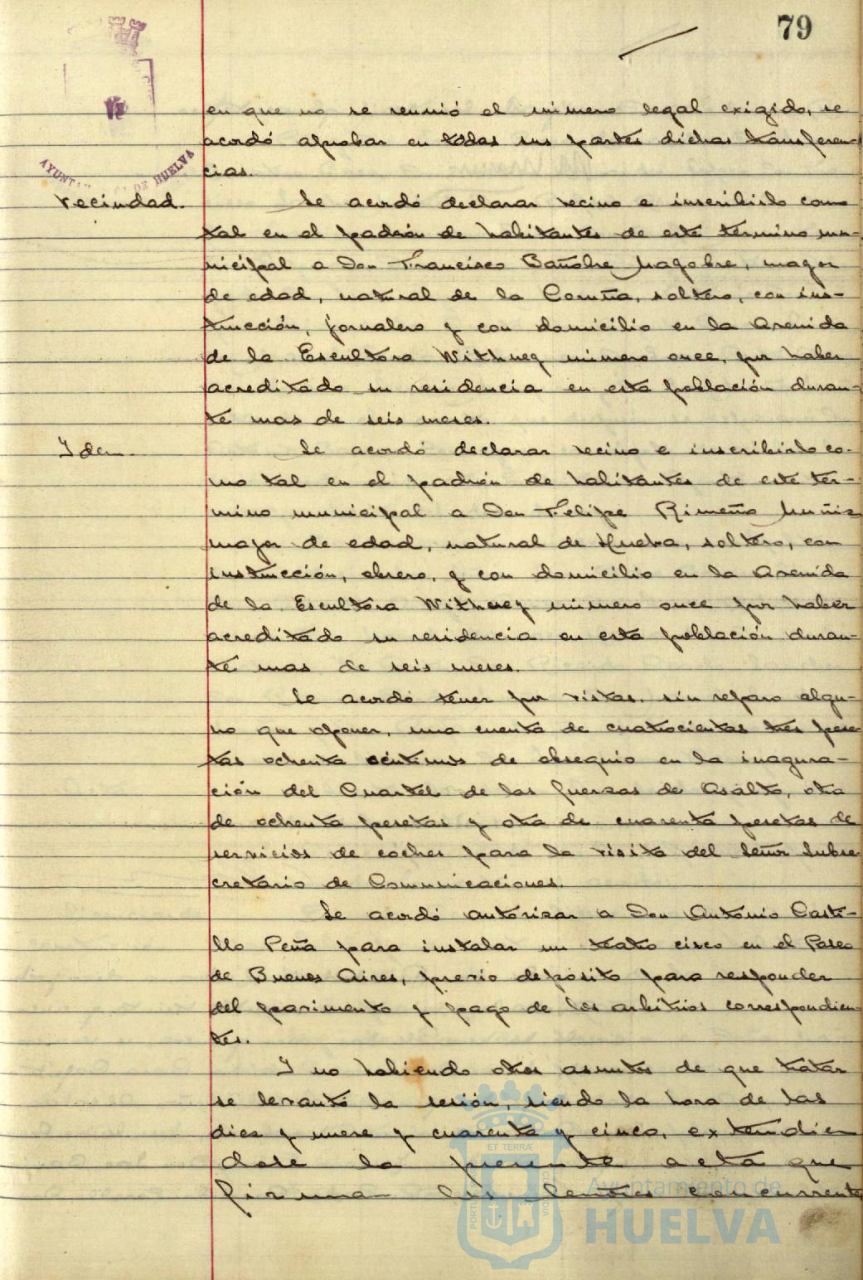 79
en que no se reunió el número legal exigido, se
acordó aprobar en todas sus partes dichas transferen-
cias.
AYUNTAMIENTO DE HUELVA
Vecindad.
Se acordó declarar vecino e inscribirlo como
tal en el padrón de habitantes de este término mu-
nicipal a Don Francisco Bañobre Nagobre, mayor
de edad, natural de la Coruña, soltero, con ins-
trucción, jornalero y con domicilio en la Avenida
de la Escultora Withney número once, por haber
acreditado su residencia en esta población duran-
te mas de seis meses.
Idem.
Se acordó declarar vecino e inscribirlo co-
mo tal en el padrón de habitantes de este tér-
mino municipal a Don Felipe Rimeño Muñiz
mayor de edad, natural de Huelva, soltero, con
instrucción, obrero, y con domicilio en la Avenida
de la Escultora Withney número once por haber
acreditado su residencia en esta población duran-
te mas de seis meses.
Se acordó tener por vistas, sin reparo algu-
no que oponer, una cuenta de cuatrocientas tres pese-
tas ochenta céntimos de obsequio en la inagura-
ción del Cuartel de las fuerzas de Asalto, otra
de ochenta pesetas y otra de cuarenta pesetas de
servicios de coches para la visita del Señor Subse
cretario de Comunicaciones.
Se acordó autorizar a Don António Casti-
llo Peña para instalar un teatro circo en el Paseo
de Buenos Aires, previo depósito para responder
del pavimento y pago de los arbitrios correspondien-
tes.
Y no habiendo otros asuntos de que tratar
se levantó la sesión, siendo la hora de las
diez y nueve y cuarenta y cinco, extendien
dose la presente acta que
firman los señores concurrente
Ayuntamiento de
HUELVA